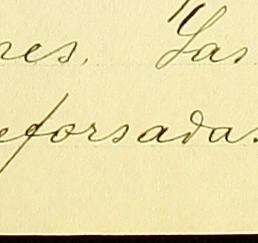 res. Las
eforsadas